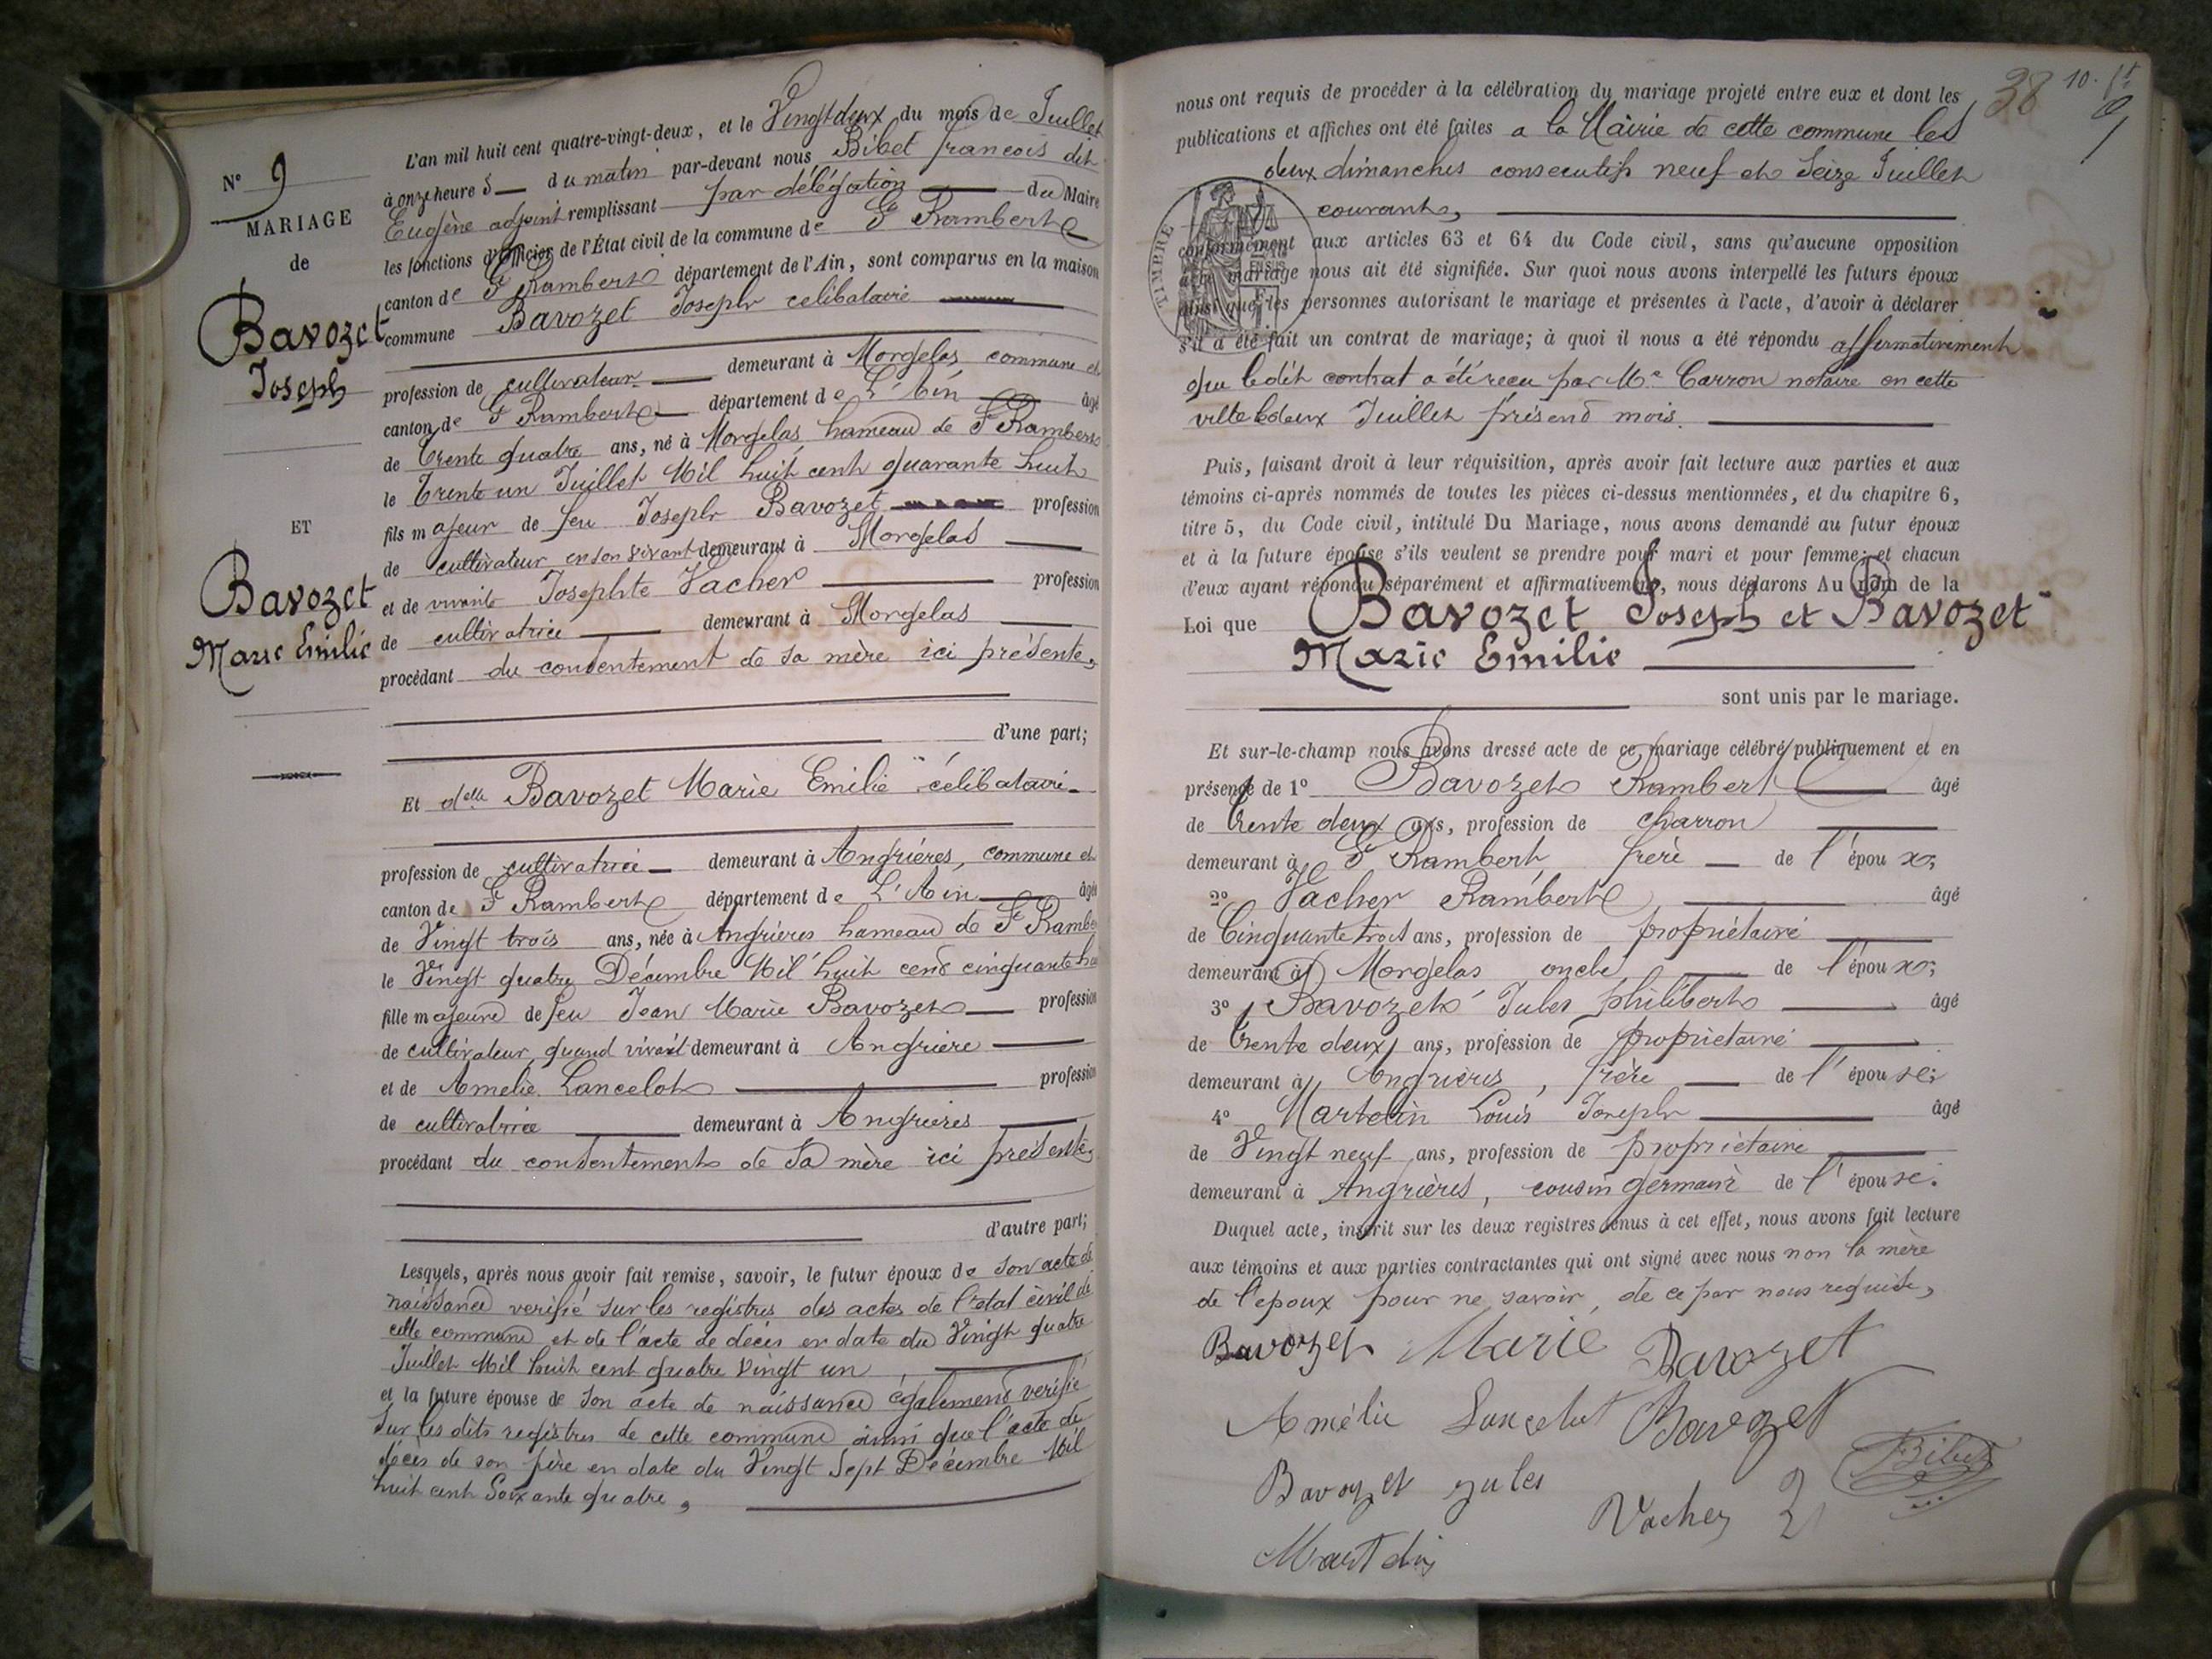 N° 9
MARIAGE
de
Bavozet
Joseph
ET
Bavozet
Marie Emilie
L'an mil huit cent quatre-vingt-deux, et le Vingt deux du mois de Juillet
à onze heures du matin par-devant nous Bibet françois dit
Eugène adjoint remplissant par délégation du Maire
les fonctions d'Officier de l'État civil de la commune de St Rambert
canton de St Rambert département de l'Ain, sont comparus en la maison
commune Bavozet Joseph celibataire
profession de cultivateur demeurant à Morgelas, commune et
canton de St Rambert département de L'Ain âgé
de Trente quatre ans, né à Morgelas, hameau de St Rambert
le Trente un Juillet Mil huit cent quarante huit
fils majeur de feu Joseph Bavozet profession
de cultivateur en son vivant demeurant à Morgelas
et de vivante Josephte Vacher profession
de cultivatrice demeurant à Morgelas
procédant du consentement de sa mère ici présente,
d'une part;
Et delle Bavozet Marie Emilie célibataire
profession de cultivatrice demeurant à Angrières, commune et
canton de St Rambert département de L'Ain âgée
de Vingt trois ans, née à Angrières hameau de St Rambe
le Vingt quatre Décembre Mil huit cent cinquante hu
fille majeure de feu Jean Marie Bavozet profession
de cultivateur quand vivait demeurant à Angriere
et de Amelie Lancelot profession
de cultivatrice demeurant à Angrieres
procédant du consentement de sa mère ici présente,
d'autre part;
Lesquels, après nous avoir fait remise, savoir, le futur époux de son acte de
naissance verifié sur les registres des actes de l'etat civil de
cette commune et de l'acte de décès en date du Vingt quatre
Juillet Mil huit cent quatre vingt un
et la future épouse de son acte de naissance également verifié
sur les dits registres de cette commune ainsi que l'acte de
décès de son père en date du Vingt Sept Décembre Mil
huit cent Soixante quatre,
38 10.
nous ont requis de procéder à la célébration du mariage projeté entre eux et dont les
publications et affiches ont été faites a la Mairie de cette commune les
deux dimanches consecutifs neuf et Seize Juillet
courant,
TIMBRE
conformément aux articles 63 et 64 du Code civil, sans qu'aucune opposition
audit mariage nous ait été signifiée. Sur quoi nous avons interpellé les futurs époux
ainsi que les personnes autorisant le mariage et présentes à l'acte, d'avoir à déclarer
s'il a été fait un contrat de mariage; à quoi il nous a été répondu affirmativement
que ledit contrat a été recu par Me Carron notaire en cette
ville le deux Juillet présent mois.
Puis, faisant droit à leur réquisition, après avoir fait lecture aux parties et aux
témoins ci-après nommés de toutes les pièces ci-dessus mentionnées, et du chapitre 6,
titre 5, du Code civil, intitulé Du Mariage, nous avons demandé au futur époux
et à la future épouse s'ils veulent se prendre pour mari et pour femme; et chacun
d'eux ayant répondu séparément et affirmativement, nous déclarons Au nom de la
Loi que Bavozet Joseph et Bavozet
Marie Emilie
sont unis par le mariage.
Et sur-le-champ nous avons dressé acte de ce mariage célébré publiquement et en
présence de 1° Bavozet Rambert âgé
de Trente deux ans, profession de charron
demeurant à St Rambert, frère de l'époux;
2° Vacher Rambert âgé
de Cinquante trois ans, profession de propriétaire
demeurant à Morgelas oncle de l'époux;
3° Bavozet Jules philibert âgé
de Trente deux ans, profession de propriétaire
demeurant à Angrières, frère de l'épouse;
4° Martelin Louis Joseph âgé
de Vingt neuf ans, profession de propriétaire
demeurant à Angrières, cousin germain de l'épouse.
Duquel acte, inscrit sur les deux registres tenus à cet effet, nous avons fait lecture
aux témoins et aux parties contractantes qui ont signé avec nous non la mère
de l'epoux pour ne savoir, de ce par nous requise,
Bavozet Marie Bavozet
Amélie Lancelot Bavozet
Bavozet jules Vacher Bibet